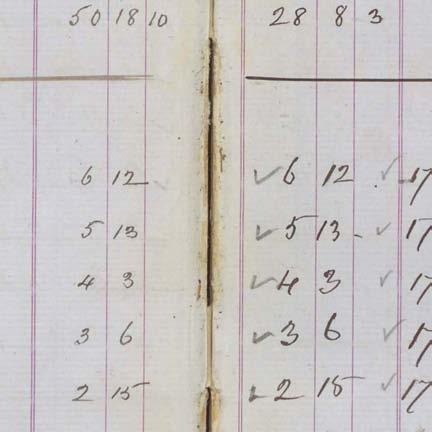 50 18 10 28 8 3
6 12 ✓ 6 12 ✓ 17
5 13 ✓ 5 13 - ✓ 17
4 3 ✓ 4 3 ✓ 17
3 6 ✓ 3 6 ✓ 17
2 15 ✓ 2 15 ✓ 17